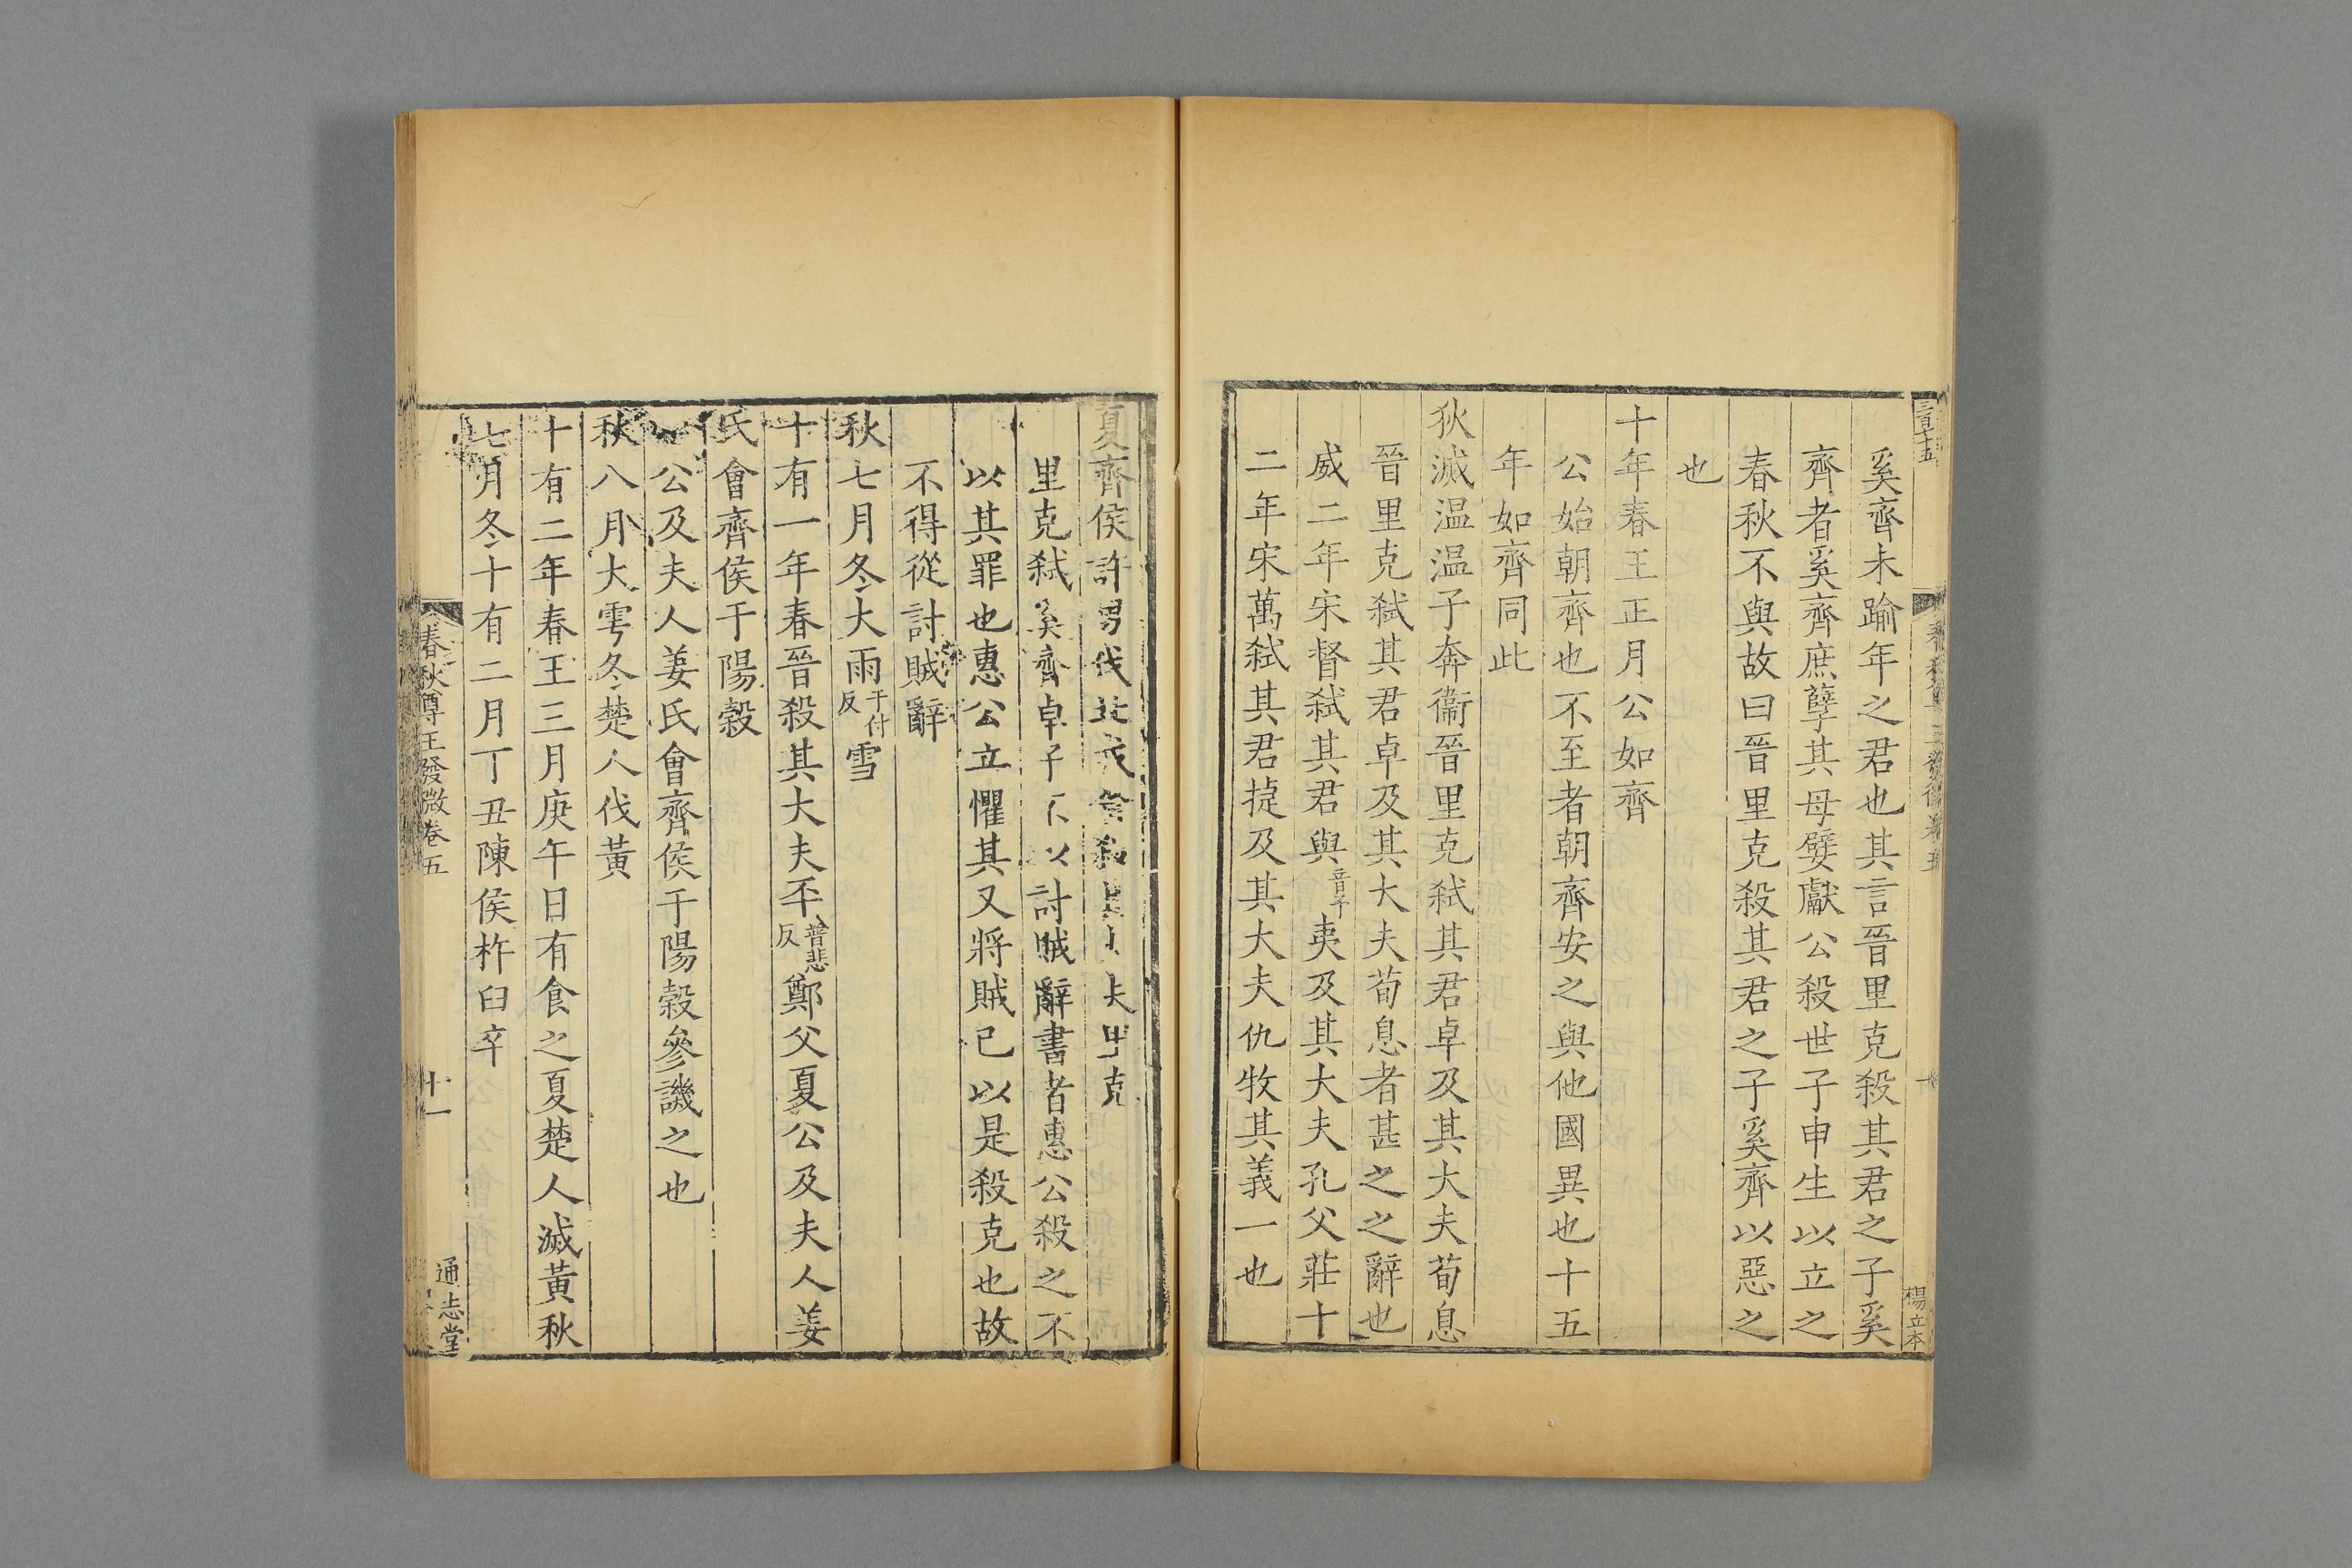 奚齊未踰年之君也其言晉里克殺其君之子奚
齊者奚齊庶孽其母嬖獻公殺世子申生以立之
春秋不與故曰晉里克殺其君之子奚齊以惡之
也
十年春王正月公如齊
公始朝齊也不至者朝齊安之與他國異也十五
年如齊同此
狄滅温温子奔衞晉里克弑其君卓及其大夫荀息
晉里克弑其君卓及其大夫荀息者甚之之辭也
威二年宋督弑其君與音予夷及其大夫孔父莊十
二年宋萬弑其君捷及其大夫仇牧其義一也
夏齊侯許男伐北戎晉殺其大夫里克
里克弑奚齊卓子不以討賊辭書者惠公殺之不
以其罪也惠公立懼其又將賊已以是殺克也故
不得從討賊辭
秋七月冬大雨于付反雪
十有一年春晉殺其大夫㔻普悲反鄭父夏公及夫人姜
氏會齊侯于陽穀
公及夫人姜氏會齊侯于陽穀參譏之也
秋八月大雩冬楚人伐黃
十有二年春王三月庚午日有食之夏楚人滅黃秋
七月冬十有二月丁丑陳侯杵臼卒
春秋尊王發微卷五
十一
通志堂
楊立本